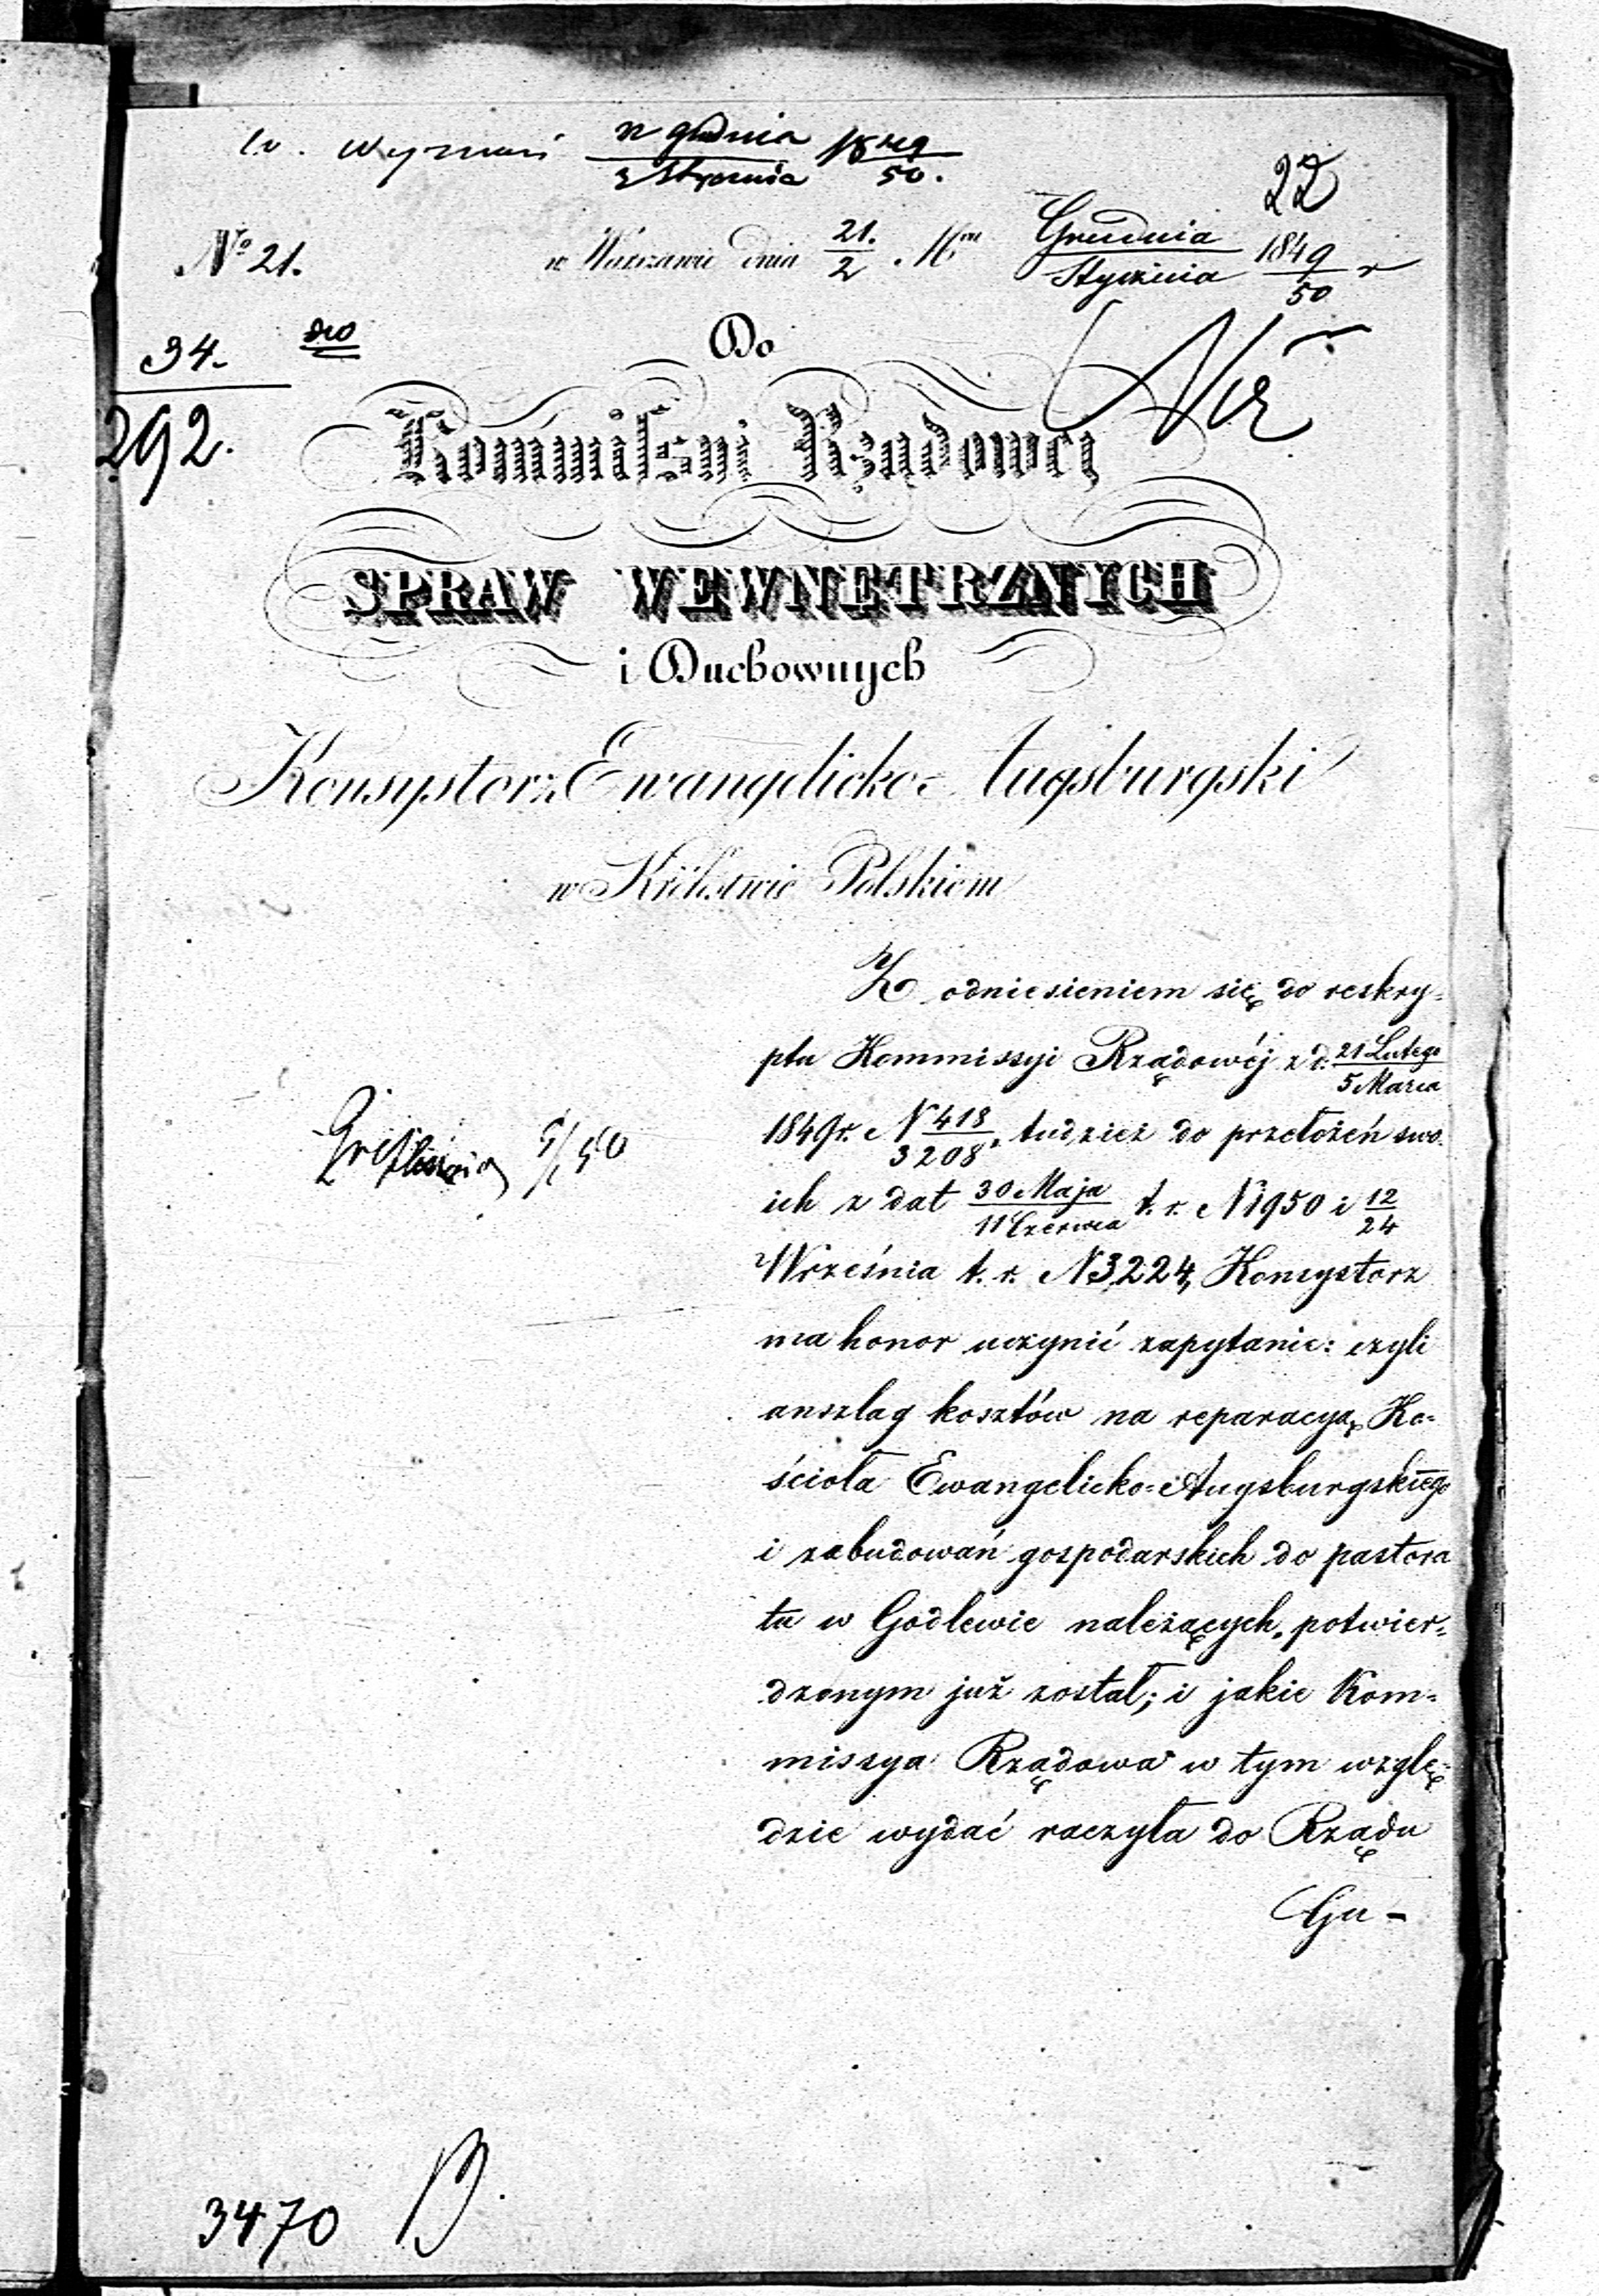 w. Wyznań 22 grudnia / 3 Stycznia 1849/50.
22
No 21. w Warszawie dnia 21./2 Mca Grudnia/Stycznia 1849/50 r
34. / 292.
Do
Kommissyi Rządowej
SPRAW WEWNĘTRZNYCH
i Duchownych
Konsystorz Ewangelicko-Augsburgski
w Królestwie Polskiem
Z odniesieniem się do reskry-
ptu Kommissyi Rządowéj z d. 21 Lutego/5 Marca
1849 r. N 418/3208, tudzież do przełożeń swo-
ich z dat 30 Maja/11 Czerwca t. r. N 1950 i 12/24
Września t. r. N 3224, Konsystorz
ma honor uczynić zapytanie: czyli
anszlag kosztów na reparacyą Ko-
ścioła Ewangelicko-Augsburgskiego
i zabudowań gospodarskich do pastora
tu w Godlewie należących, potwier-
dzonym już został; i jakie Kom-
missya Rządowa w tym wzglę-
dzie wydać raczyła do Rządu
Gu-
5/1 50
3470